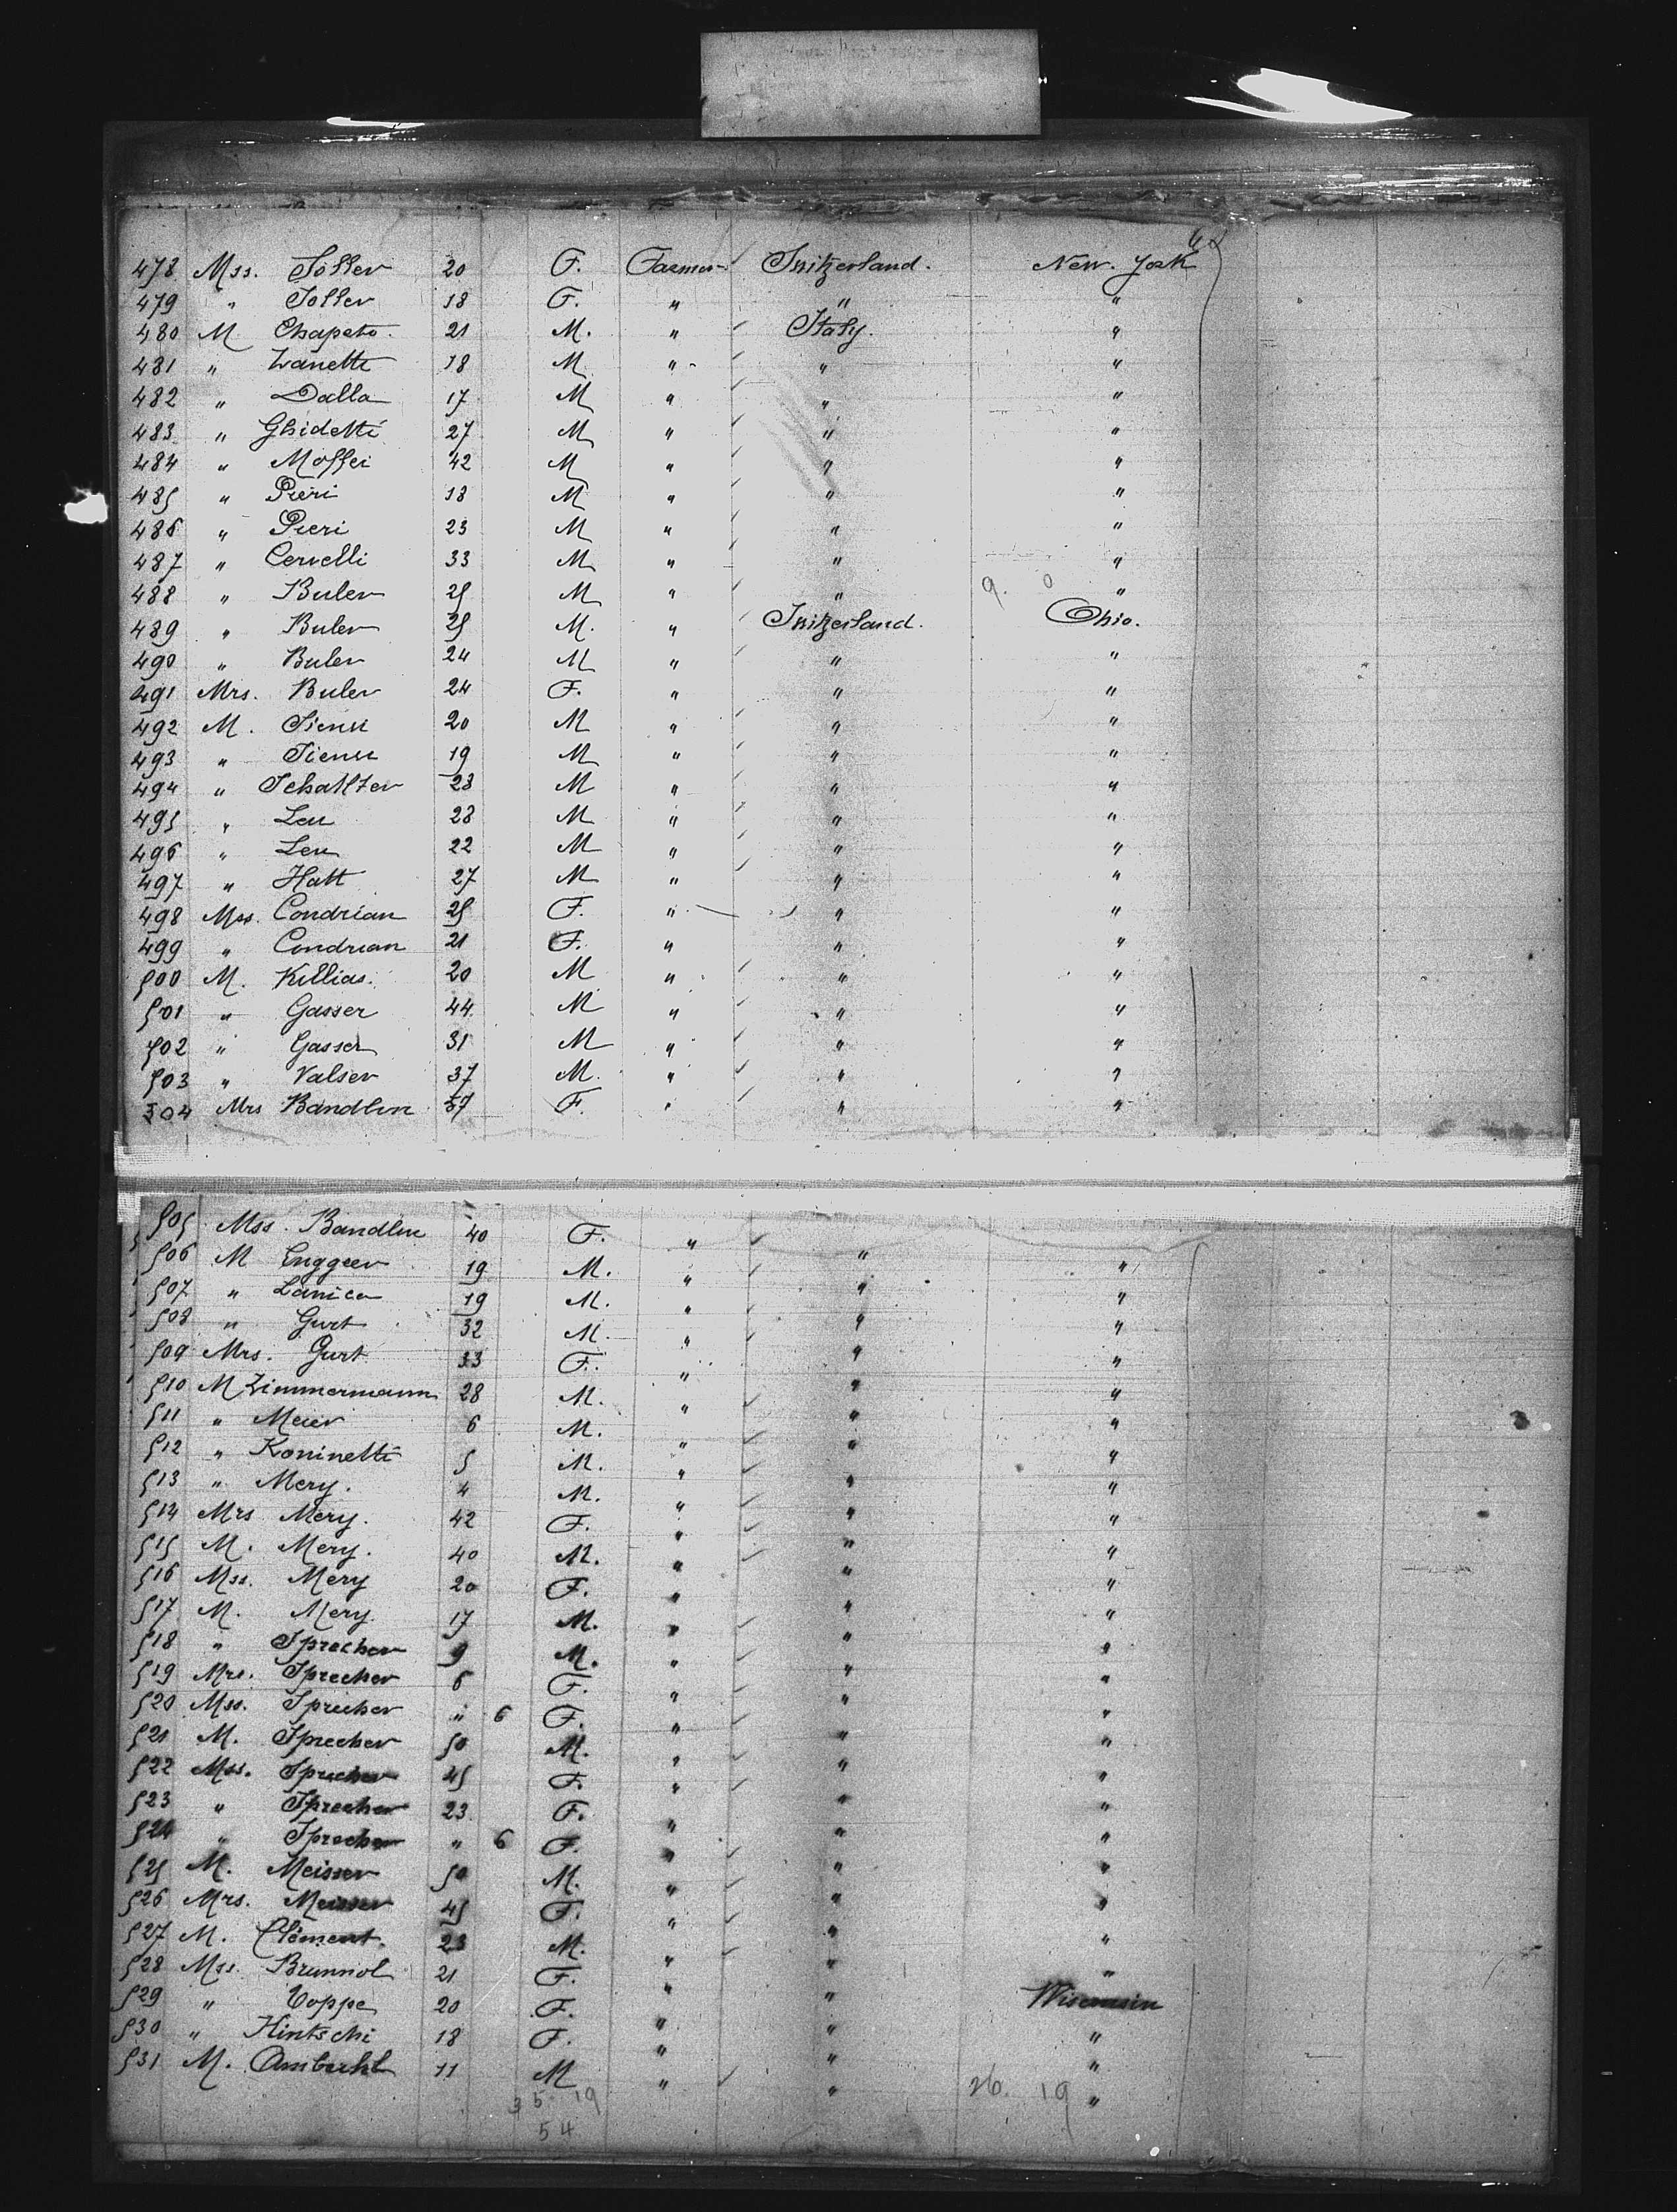 478 Mss. Soller 20 F. Farmer Switzerland. New. York
479 " Soller 18 F. " " "
480 M Chapeto. 21 M. " Italy. "
481 " Zanetti 18 M " " "
482 " Dalla 17 M " " "
483 " Ghidetti 27 M " " "
484 " Moffei 42 M " " "
485 " Pieri 18 M " " "
486 " Pieri 23 M " " "
487 " Cervelli 33 M " " "
488 " Buler 25 M " " 9. 0 "
489 " Buler 25 M. " Switzerland. Ohio.
490 " Buler 24 M " " "
491 Mrs. Buler 24 F. " " "
492 M. 20 M " " "
493 " 19 M " " "
494 " 23 M " " "
495 " Leu 28 M " " "
496 " Leu 22 M " " "
497 " Hatt 27 M " " "
498 Mss. Condrian 25 F. " " "
499 " Condrian 21 F. " " "
500 M. Killias. 20 M " " "
501 " Gasser 44. M " " "
502 " Gasser 31 M " " "
503 " Valser 37 M. " " "
504 Mrs Bandlin 57 F. " " "
505 Mss. Bandlin 40 F. " " "
506 M Enggeer 19 M. " " "
507 " Lanica 19 M. " " "
508 " Gurt 32 M. " " "
509 Mrs. Gurt 33 F. " " "
510 M Zimmermann 28 M. " " "
511 " Meier 6 M. " " "
512 " Koninetti 5 M. " " "
513 " Mery. 4 M. " " "
514 Mrs Mery. 42 F. " " "
515 M. Mery. 40 M. " " "
516 Mss. Mery 20 F. " " "
517 M. Mery. 17 M. " " "
518 " Sprecher 9 M. " " "
519 Mrs. Sprecher 6 F. " " "
520 Mss. Sprecher " 6 F. " " "
521 M. Sprecher 50 M. " " "
522 Mss. Sprecher 45 F. " " "
523 " Sprecher 23 F. " " "
524 " Sprecher " 6 F. " " "
525 M. Meisser 50 M. " " "
526 Mrs. Meisser 45 F. " " "
527 M. Clement. 23 M. " " "
528 Mss. Brunnol 21 F. " " "
529 " Coppe 20 F. " " Wisconsin
530 " Hintschi 18 F. " " "
531 M. Ambuhl 11 M " " "
35 19 26. 19 "
54